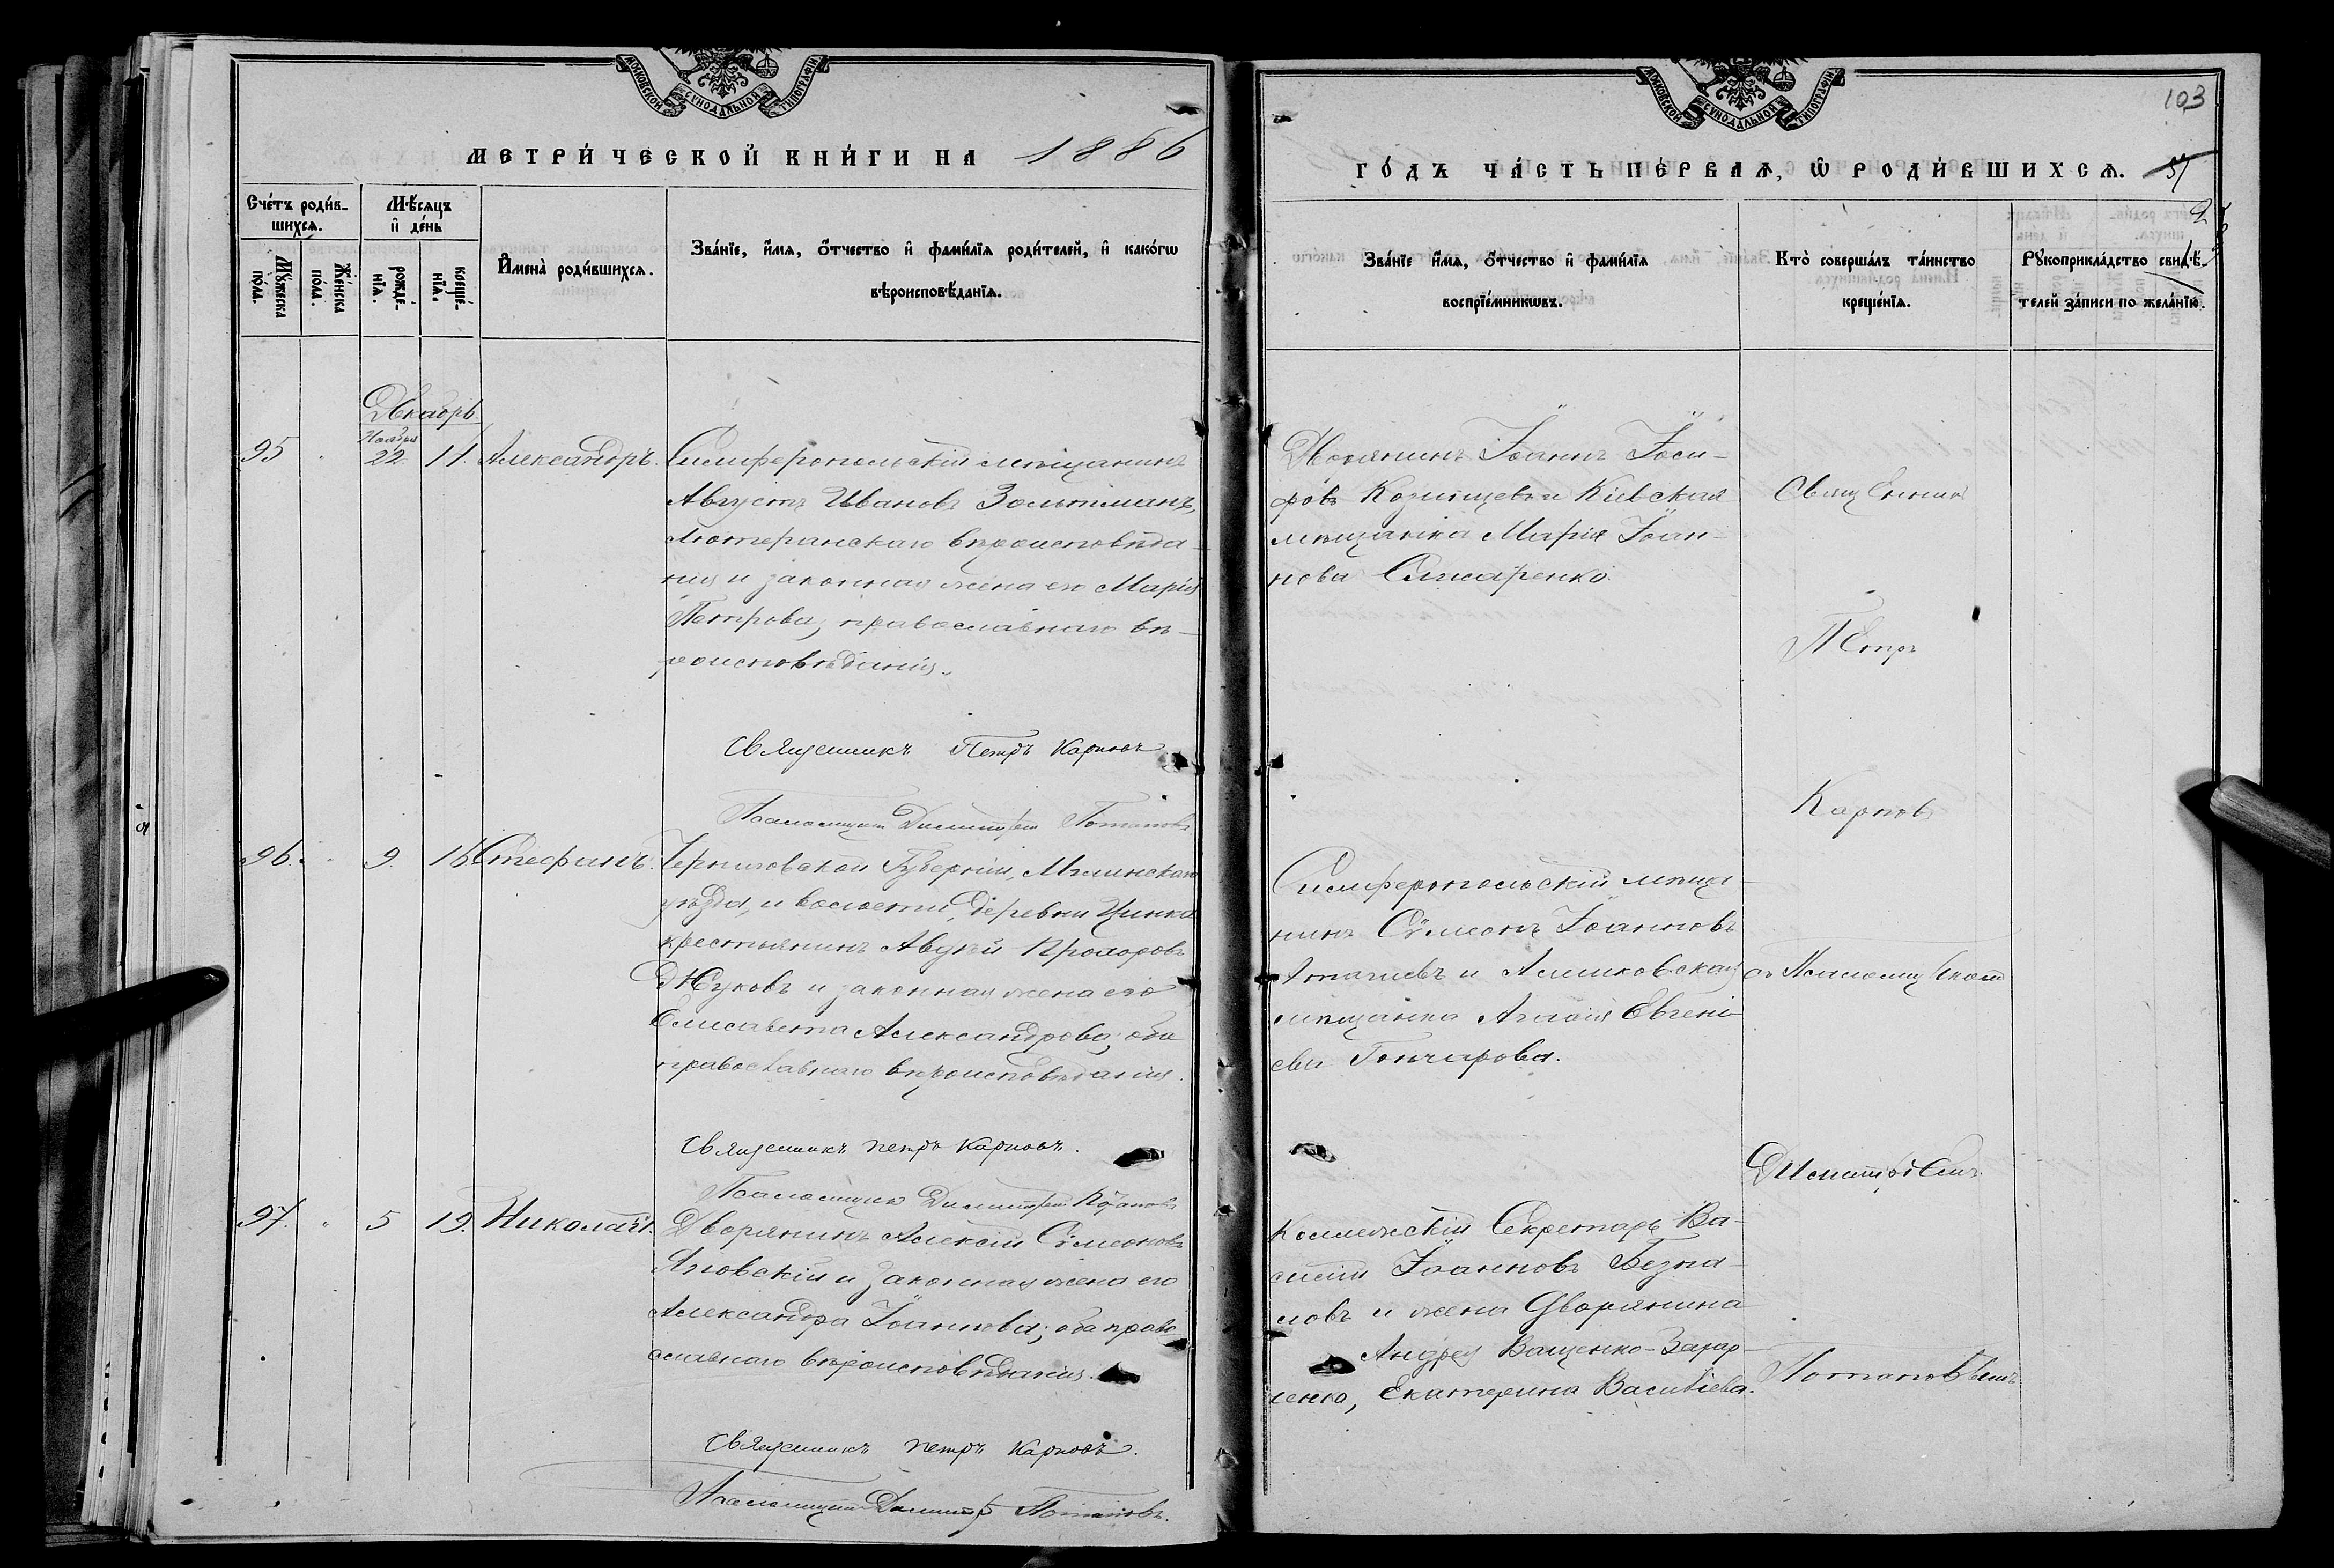 МОСКОВСКОЙ СУНОДАЛЬНОЙ ТИПОГРАФІИ
МЕТРИ́ЧЕСКОЙ КНИ́ГИ НА 1886
Сче́тъ роди́в-
шихсѧ.
Мѣ́сѧцъ
и҆ де́нь
Мꙋ́жеска
по́ла.
Же́нска
по́ла.
рожде́-
нїѧ.
креще́-
нїѧ.
И҆мена̀ роди́вшихсѧ.
Зва́нїе, и҆́мѧ, ѻ҆́тчество и҆ фами́лїѧ роди́телей, и҆ како́гѡ
вѣроисповѣ́данїѧ.
Декабрь
95 Ноября 22. 11. Александръ.
Симферопольскій мѣщанинъ
Августъ Ивановъ Зольтманъ,
лютеранскаго вѣроисповѣда-
нія и законная жена его Марія
Петрова, православнаго вѣ-
роисповѣданія.
Священникъ Петръ Карповъ
Псаломщикъ Димитрій Потаповъ
96. 9. 16 Стефанъ.
Черниговской Губерніи, Мглинскаго
уѣзда, и волости, деревни Цинка
крестьянинъ Авдѣй Прохоровъ
Жуковъ и законная жена его
Елисавета Александрова, оба
православнаго вѣроисповѣданія.
Священникъ Петръ Карповъ.
Псаломщикъ Димитрій Потаповъ
97. 5 19. Николай.
Дворянинъ Алексій Сѵмеоновъ
Яновскій и законная жена его
Александра Іоаннова, оба право
славнаго вѣроисповѣданія.
Священникъ Петръ Карповъ.
Псаломщикъ Димитрій Потаповъ.
МОСКОВСКОЙ СУНОДАЛЬНОЙ ТИПОГРАФІИ
103
ГО́ДЪ ЧА́СТЬ ПЕ́РВАѦ, Ѡ҆ РОДИ́ВШИХСѦ. 51
Зва́нїе и҆́мѧ, ѻ҆́тчество и҆ фами́лїѧ
воспрїе́мникѡвъ.
Кто̀ соверша́лъ та́инство
креще́нїѧ.
Рꙋкоприкла́дство свидѣ́-
телей за́писи по жела́нїю.
Дворянинъ Іоаннъ Іоси-
фовъ Козинцевъ и Кіевская
мѣщанка Марія Іоан-
нова Слюсаренко.
Священникъ
Петръ
Карповъ
Симферопольскій мѣща-
нинъ Сѵмеонъ Іоанновъ
и Алешковская
мѣщанка Агафія Евгені-
ева Гончарова.
съ Псаломщикомъ
Димитріемъ
Потаповымъ
Коллежскій Секретарь Ва-
силій Іоанновъ Безпа-
ловъ и жена дворянина
Андрея Ващенко-Захар-
ченко, Екатерина Васильева.